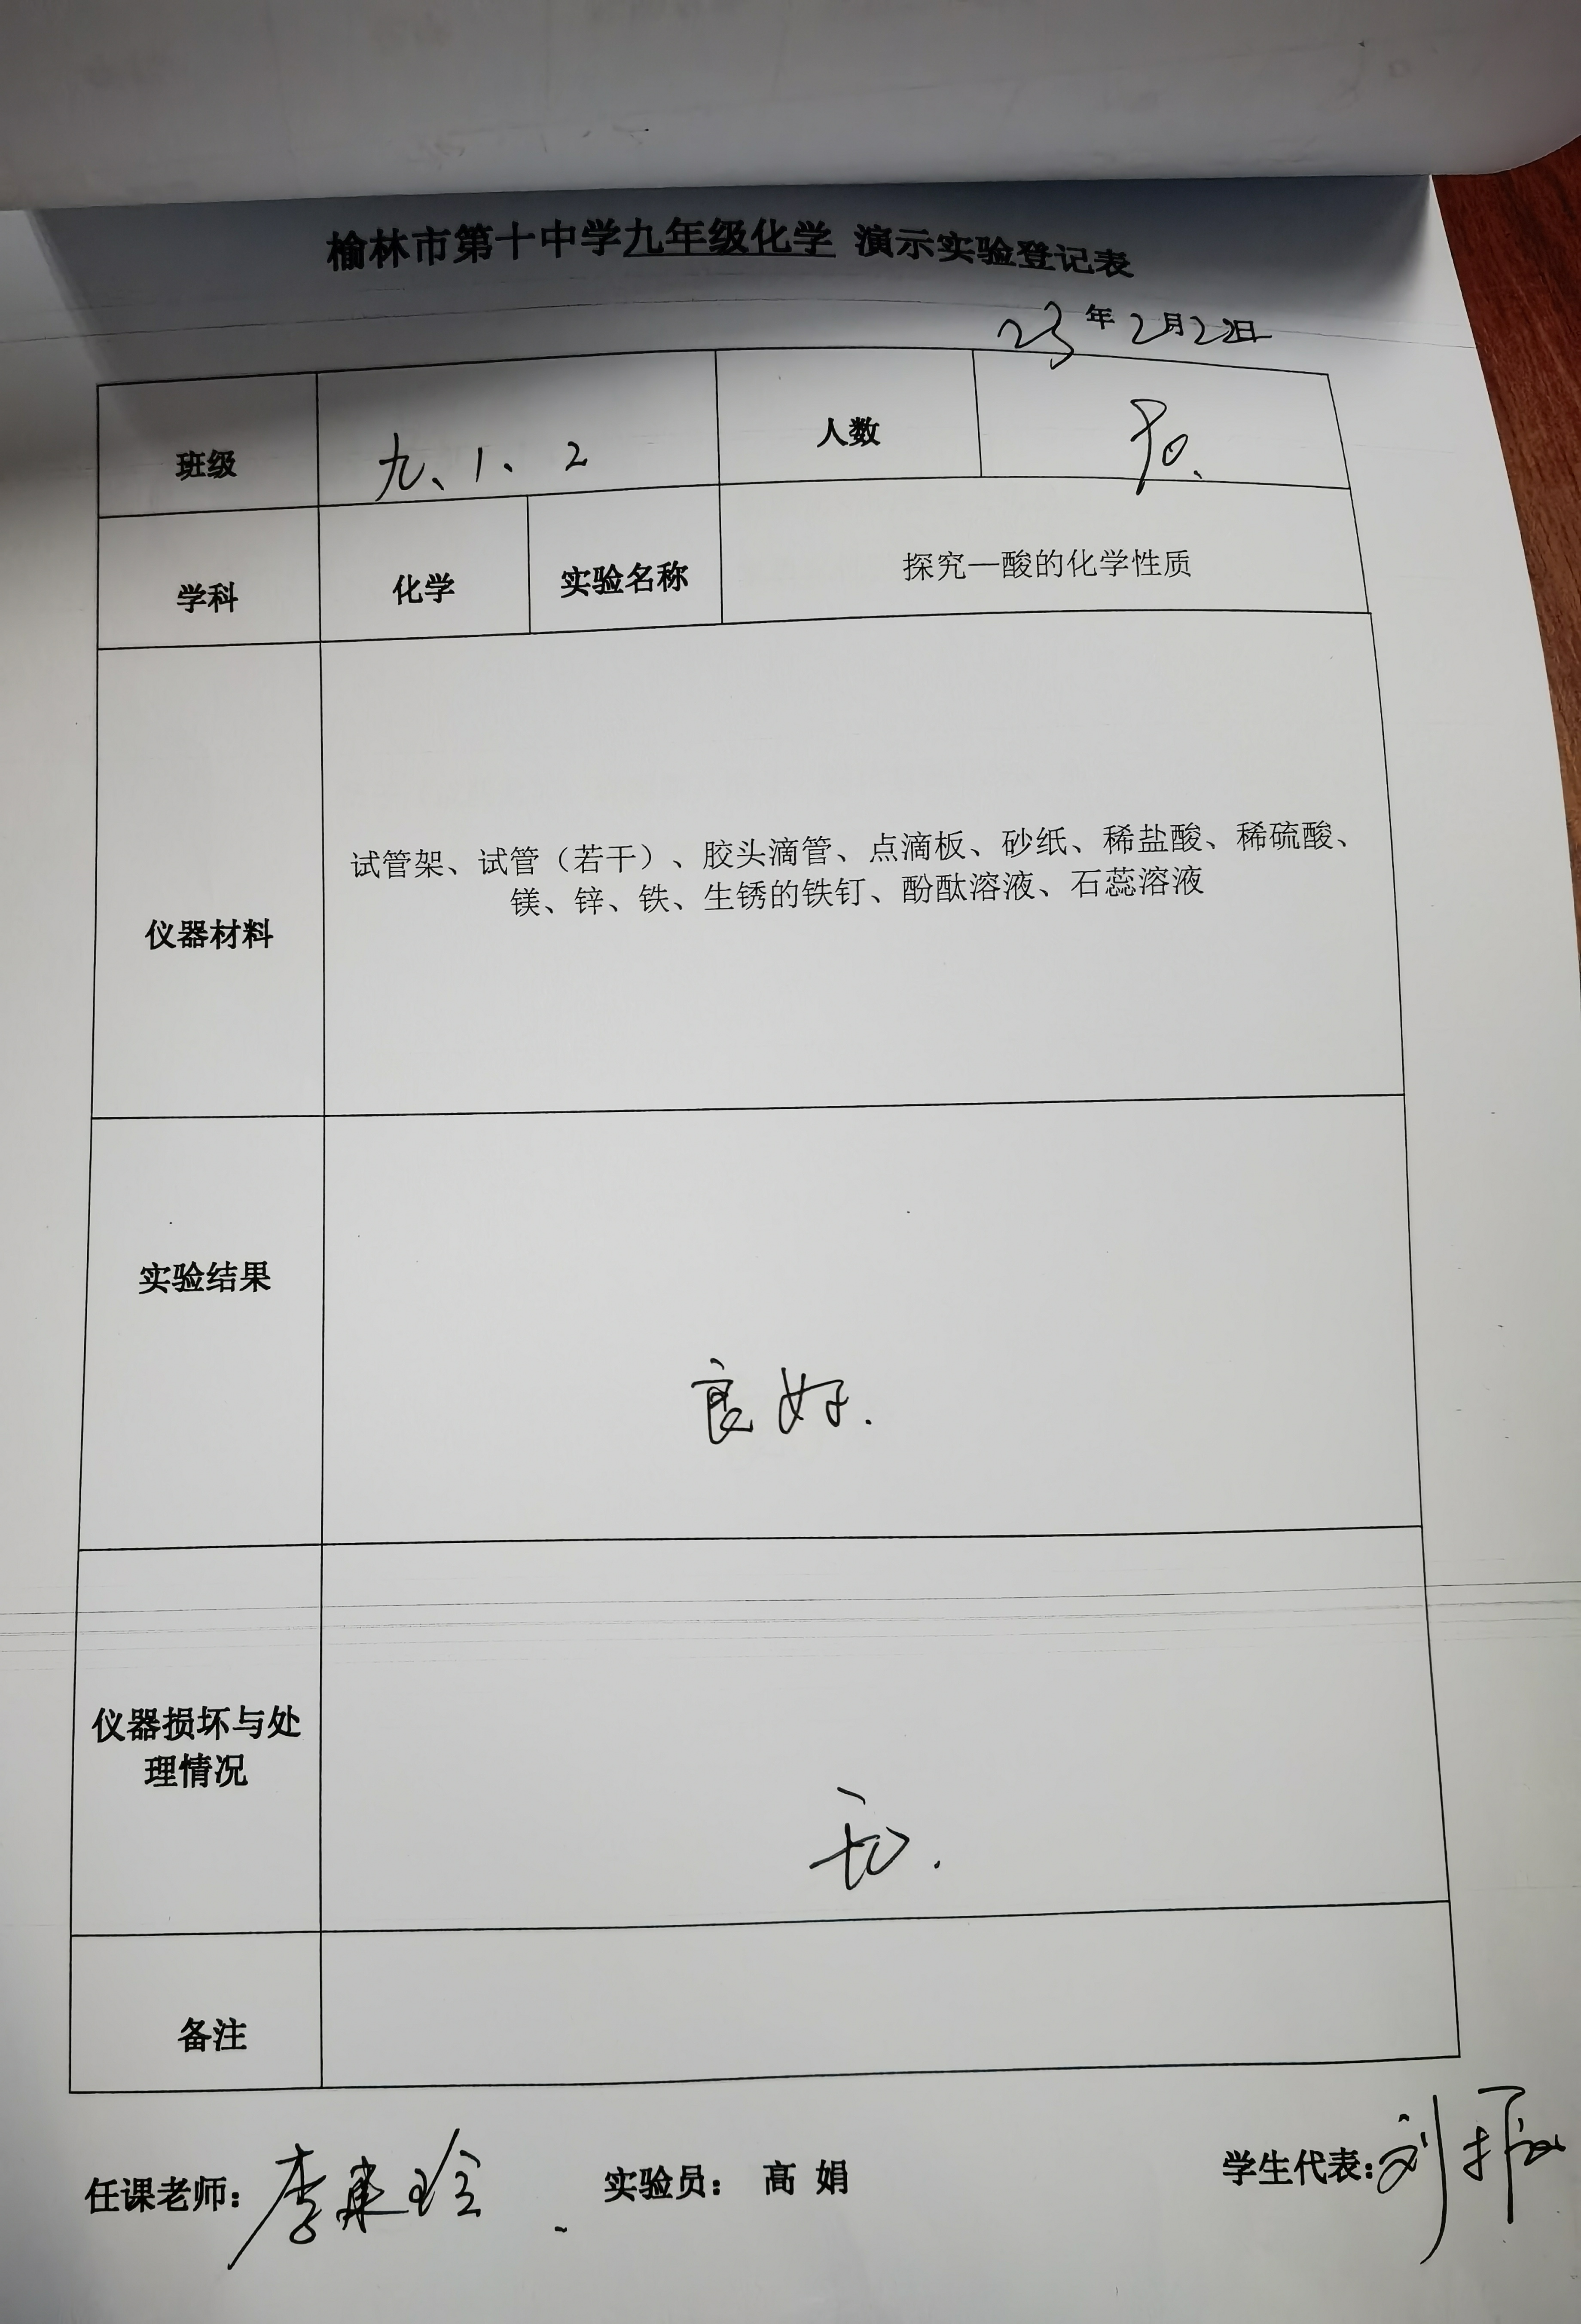 榆林市第十中学九年级化学 演示实验登记表
23年2月22日
班级 九、1、2 人数 90、
学科 化学 实验名称 探究—酸的化学性质
仪器材料
试管架、试管（若干）、胶头滴管、点滴板、砂纸、稀盐酸、稀硫酸、
镁、锌、铁、生锈的铁钉、酚酞溶液、石蕊溶液
实验结果
良好.
仪器损坏与处
理情况
无.
备注
任课老师： 李 实验员： 高 娟 学生代表: 刘